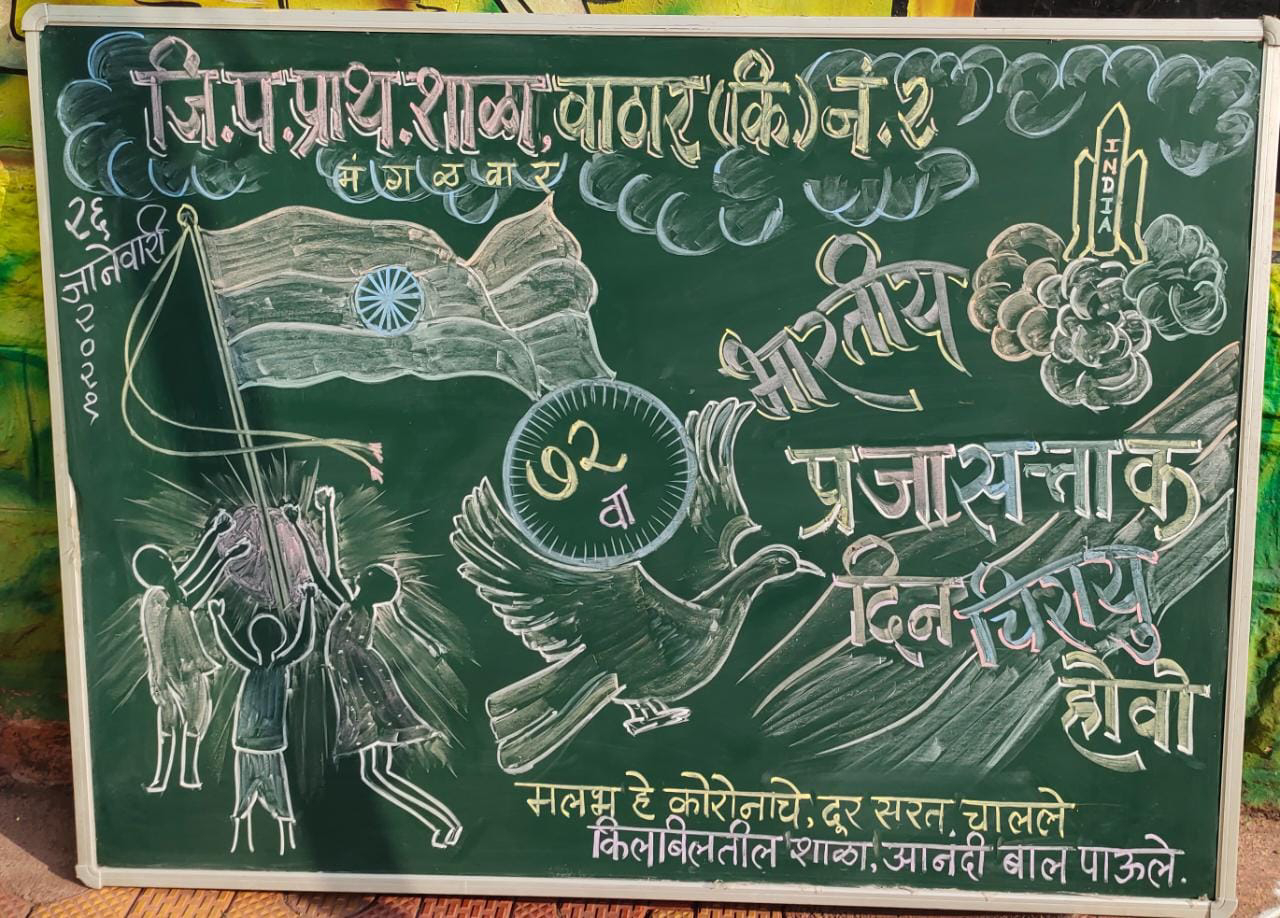 जि.प.प्राथ.शाळा, वाठार (कि.) नं. २
मंगळवार
२६
जानेवारी
२०२१
INDIA
भारतीय
७२
वा
प्रजासत्ताक
दिन चिरायु
होवो
मलभ हे कोरोनाचे, दूर सरत चालले
किलबिलतील शाळा, आनंदी बाल पाऊले.